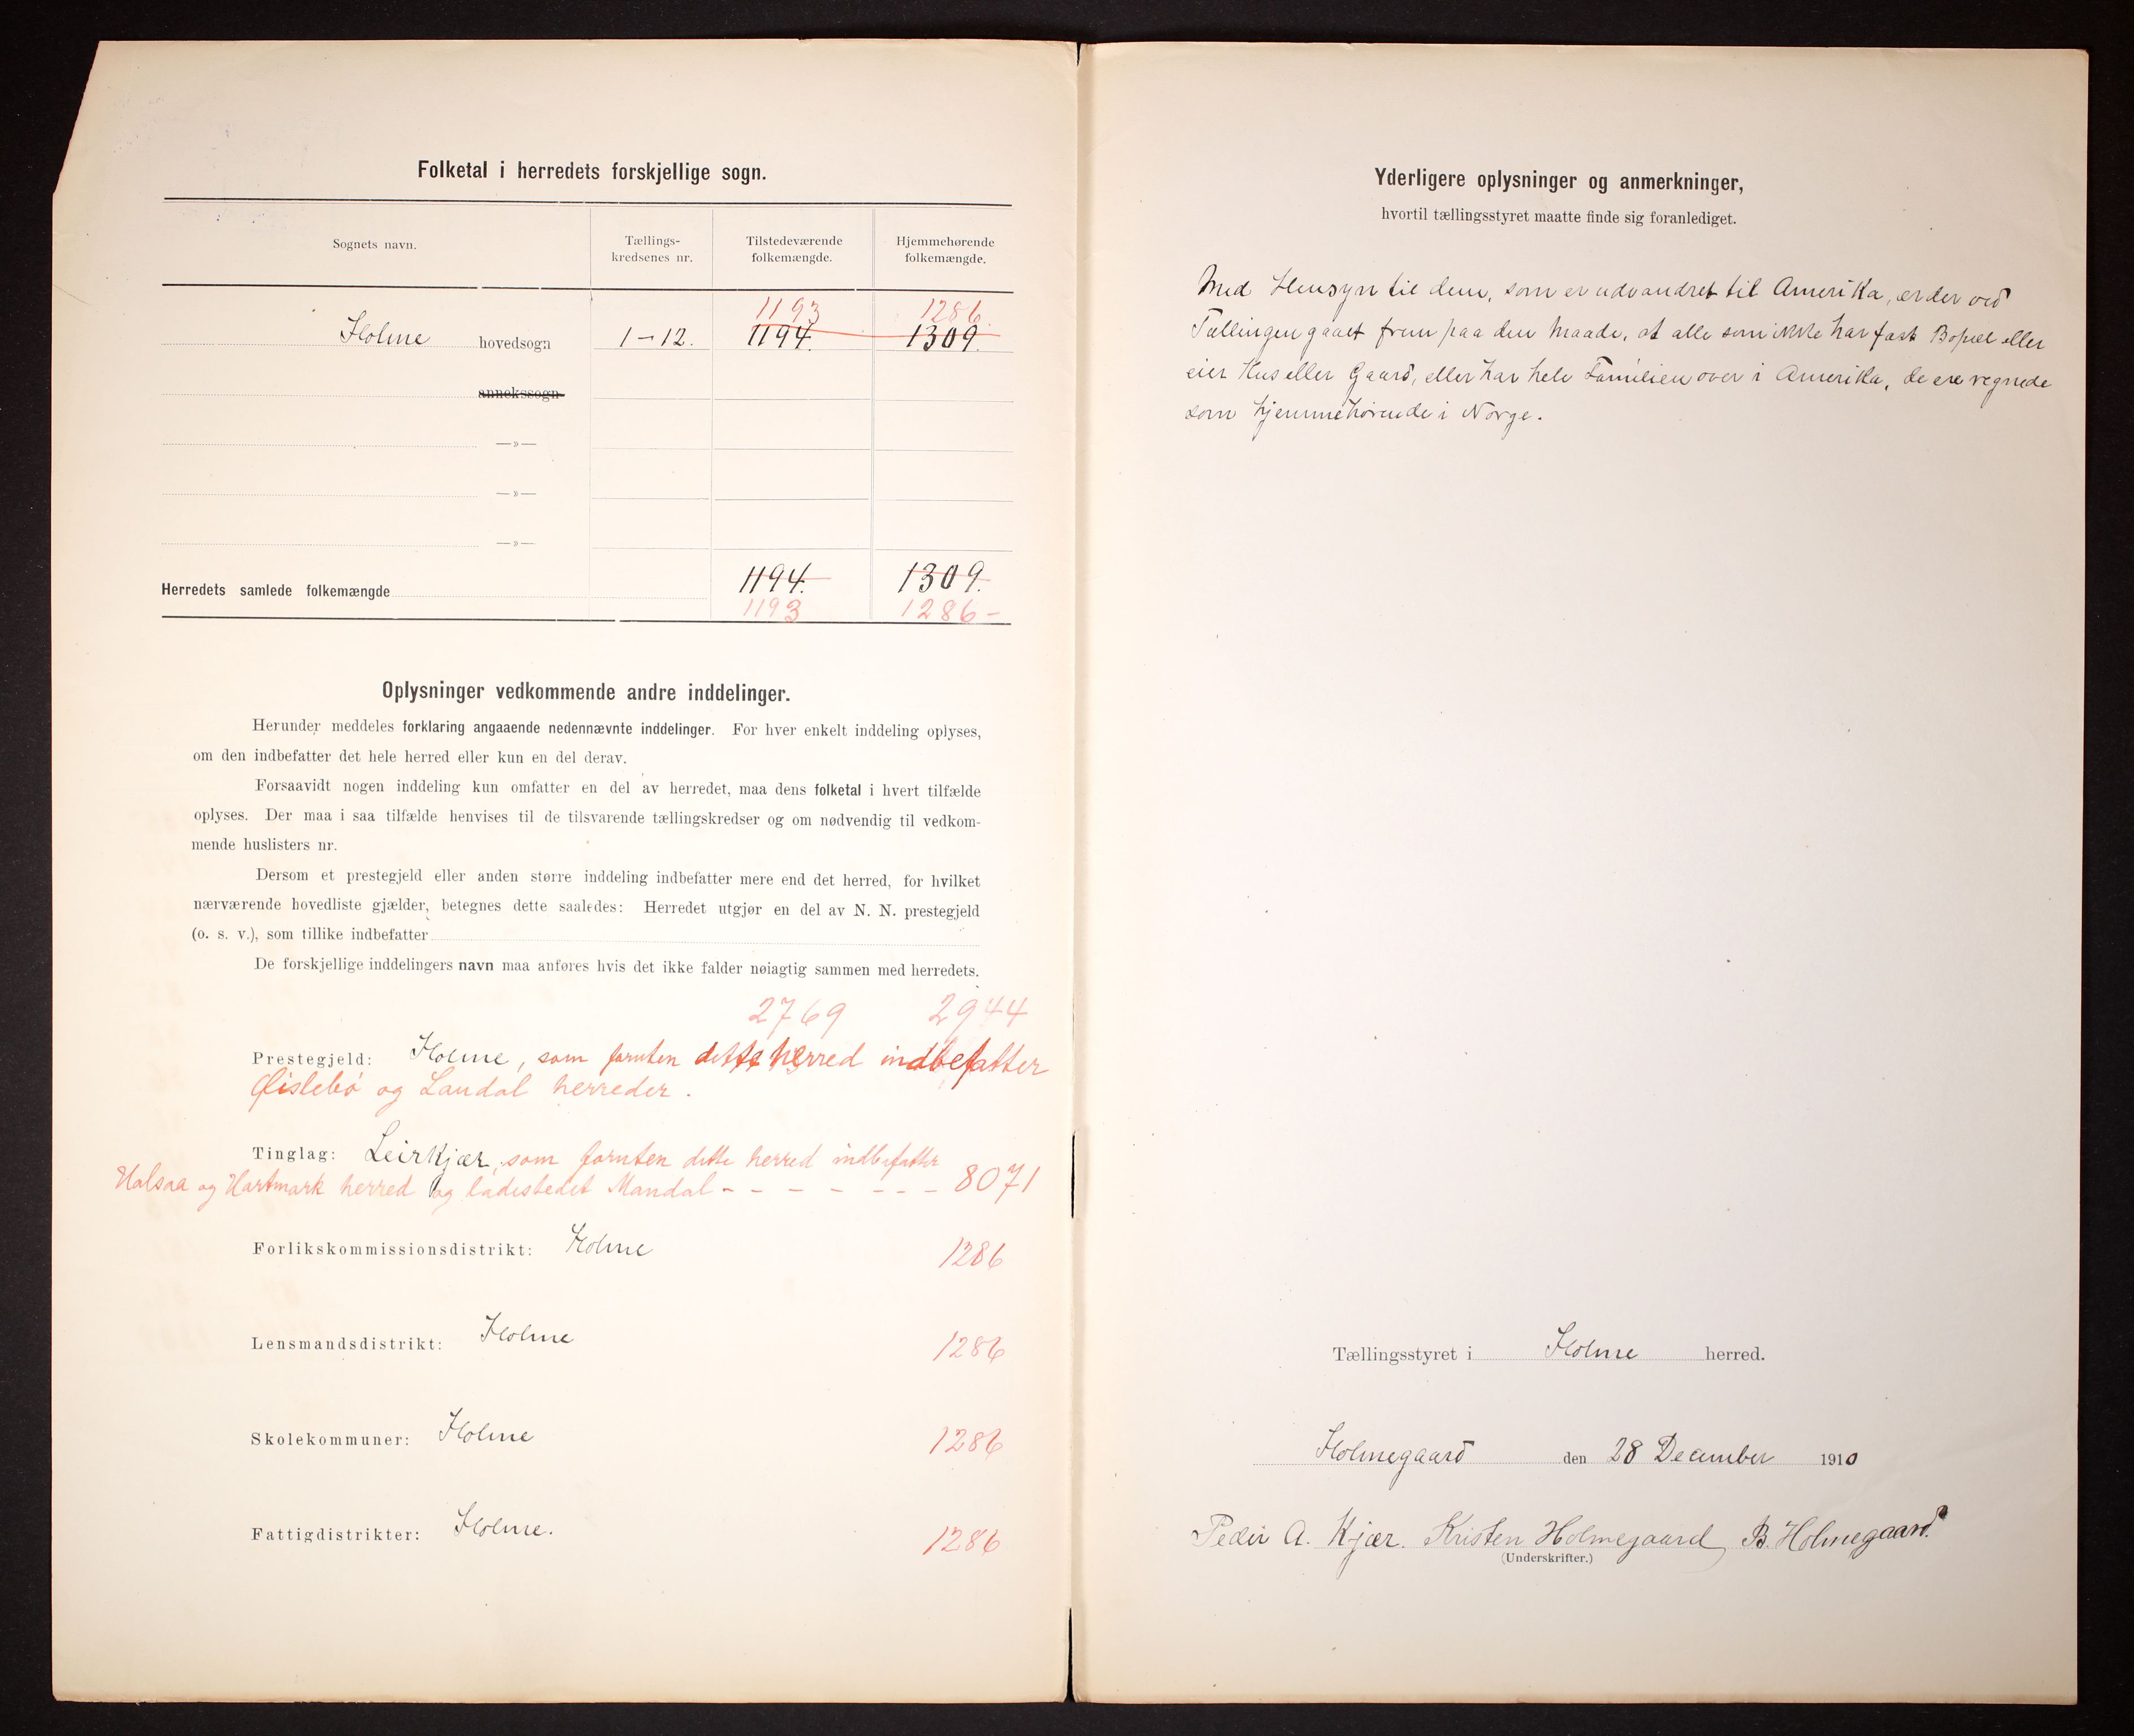 Folketal i herredets forskjellige sogn.
Sognets navn.
Tællings-
kredsenes nr.
Tilstedeværende
folkemængde.
Hjemmehørende
folkemængde.
1193 1286.
Holme hovedsogn 1-12. 1194. 1309.
annekssogn
—»—
—»—
—»—
Herredets samlede folkemængde 1194. 1309.
1193 1286-
Oplysninger vedkommende andre inddelinger.
Herunder meddeles forklaring angaaende nedennævnte inddelinger. For hver enkelt inddeling oplyses,
om den indbefatter det hele herred eller kun en del derav.
Forsaavidt nogen inddeling kun omfatter en del av herredet, maa dens folketal i hvert tilfælde
oplyses. Der maa i saa tilfælde henvises til de tilsvarende tællingskredser og om nødvendig til vedkom-
mende huslisters nr.
Dersom et prestegjeld eller anden større inddeling indbefatter mere end det herred, for hvilket
nærværende hovedliste gjælder, betegnes dette saaledes: Herredet utgjør en del av N. N. prestegjeld
(o. s. v.), som tillike indbefatter
De forskjellige inddelingers navn maa anføres hvis det ikke falder nøiagtig sammen med herredets.
2769 2944
Prestegjeld: Holme, som foruten dette herred indbefatter
Øislebø og Laudal herreder.
Tinglag: Leirkjær, som foruten dette herred indbefatter
Halsaa og Hartmark herred og ladestedet Mandal - - - - - - - 8071
Forlikskommissionsdistrikt: Holme 1286
Lensmandsdistrikt: Holme 1286
Skolekommuner: Holme 1286
Fattigdistrikter: Holme. 1286
Yderligere oplysninger og anmerkninger,
hvortil tællingsstyret maatte finde sig foranlediget.
Med Hensyn til dem, som er udvandret til Amerika, er der ved
Tællingen gaaet frem paa den Maade, at alle som ikke har fast Bopæl eller
eier Hus eller Gaard, eller har hele Familien over i Amerika, de ere regnede
som hjemmehørende i Norge.
Tællingsstyret i Holme herred.
Holmegaard den 28 December 1910
Peder A. Kjær. Kristen Holmegaard B. Holmegaard.
(Underskrifter.)